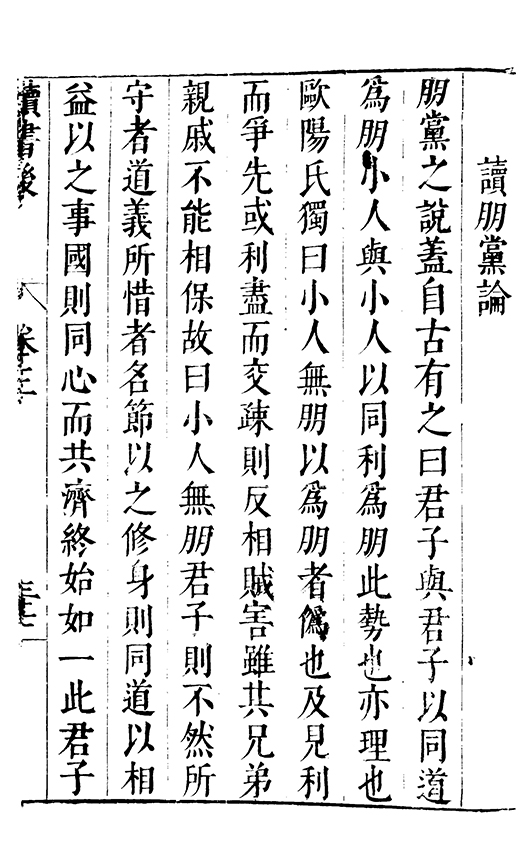 讀朋黨論
朋黨之說蓋自古有之曰君子與君子以同道
爲朋小人與小人以同利爲朋此勢也亦理也
歐陽氏獨曰小人無朋以爲朋者僞也及見利
而爭先或利盡而交疎則反相賊害雖其兄弟
親戚不能相保故曰小人無朋君子則不然所
守者道義所惜者名節以之修身則同道以相
益以之事國則同心而共濟終始如一此君子
讀書後
卷三